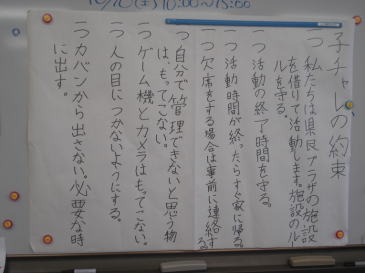 10/10(土)10:00〜15:00
子チャレの約束
一つ 私たちは県民プラザの施設
を借りて活動します。施設のルー
ルを守る。
一つ 活動の終了時間を守る。
一つ 活動時間が終ったらすぐ家に帰る。
一つ 欠席をする場合は事前に連絡する。
一つ 自分で管理できないと思う物
は、もってこない。
一つ ゲーム機とカメラはもってこない。
一つ 人の目につかないようにする。
一つ カバンから出さない。必要な時
に出す。